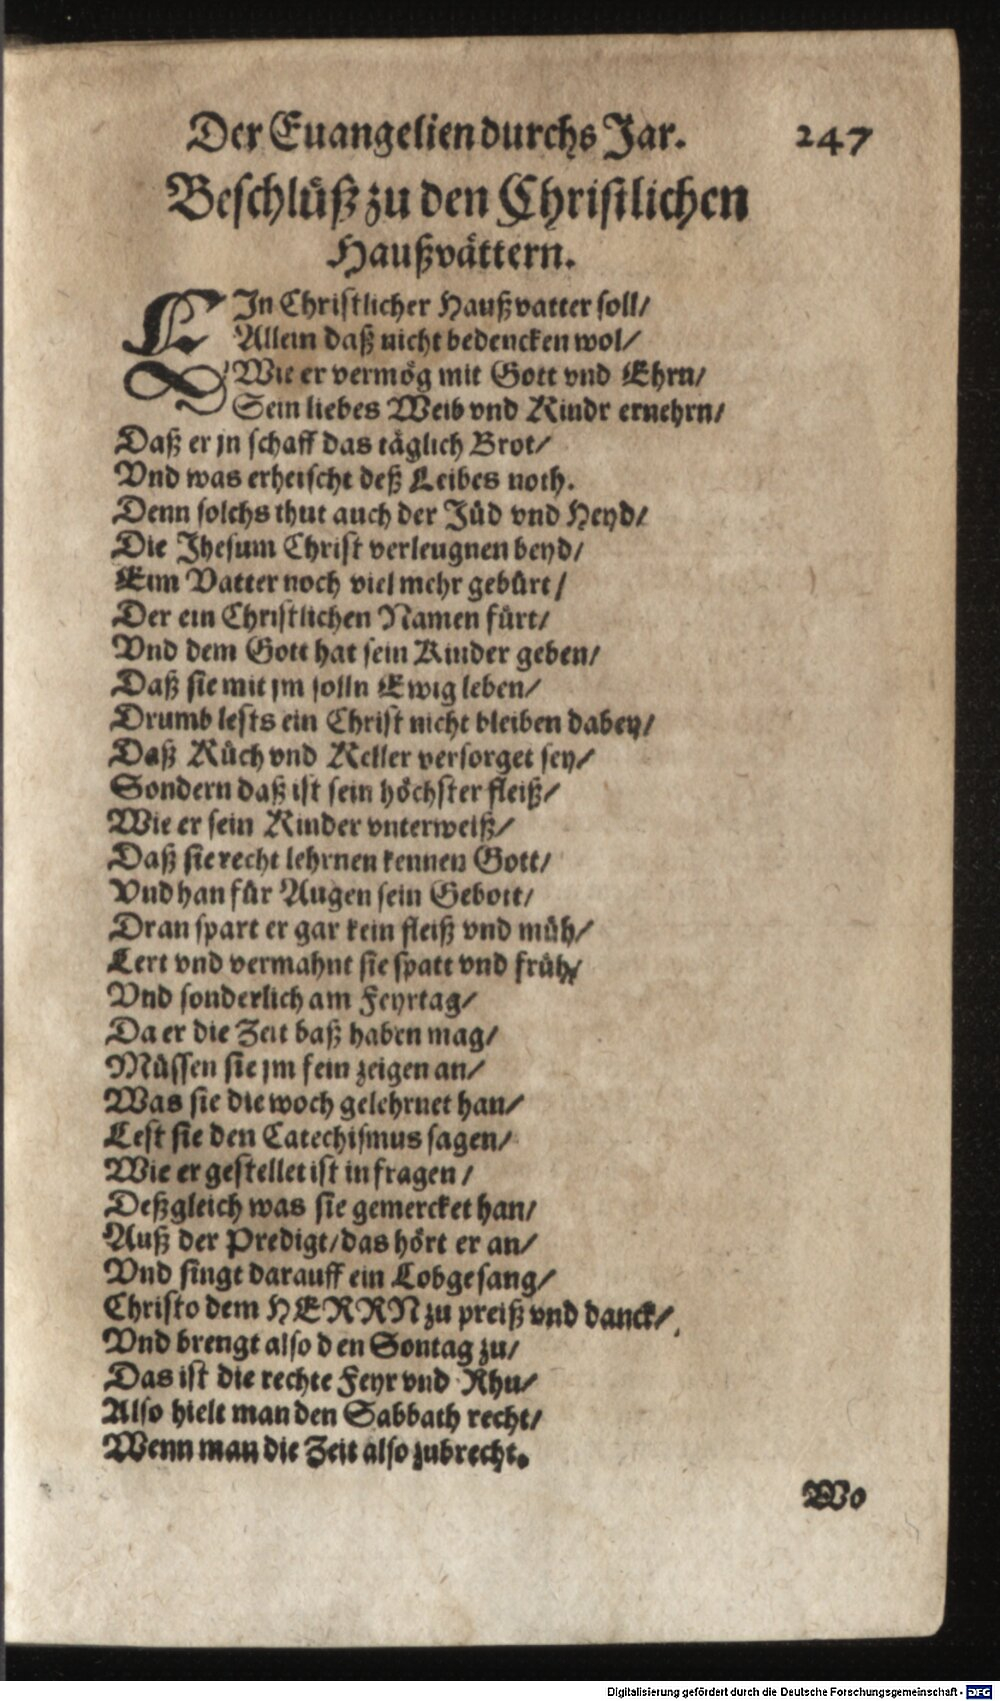 Der Euangelien durchs Jar. 247
Beschlüß zu den Christlichen
Haußvättern.
EIn Christlicher Haußvatter soll/
Allein daß nicht bedencken wol/
Wie er vermög mit Gott vnd Ehrn/
Sein liebes Weib vnd Kindr ernehrn/
Daß er jn schaff das täglich Brot/
Vnd was erheischt deß Leibes noth.
Denn solchs thut auch der Jüd vnd Heyd/
Die Jhesum Christ verleugnen beyd/
Eim Vatter noch viel mehr gebürt/
Der ein Christlichen Namen fürt/
Vnd dem Gott hat sein Kinder geben/
Daß sie mit jm solln Ewig leben/
Drumb lests ein Christ nicht bleiben dabey/
Daß Küch vnd Keller versorget sey/
Sondern daß ist sein höchster fleiß/
Wie er sein Kinder vnterweiß/
Daß sie recht lehrnen kennen Gott/
Vnd han für Augen sein Gebott/
Dran spart er gar kein fleiß vnd müh/
Lert vnd vermahnt sie spatt vnd früh/
Vnd sonderlich am Feyrtag/
Da er die Zeit baß haben mag/
Müssen sie jm fein zeigen an/
Was sie die woch gelehrnet han/
Lest sie den Catechismus sagen/
Wie er gestellet ist in fragen/
Deßgleich was sie gemercket han/
Auß der Predigt/das hört er an/
Vnd singt darauff ein Lobgesang/
Christo dem HERRN zu preiß vnd danck/
Vnd brengt also den Sontag zu/
Das ist die rechte Feyr vnd Rhu/
Also hielt man den Sabbath recht/
Wenn man die Zeit also zubrecht.
Wo
Digitalisierung gefördert durch die Deutsche Forschungsgemeinschaft - DFG